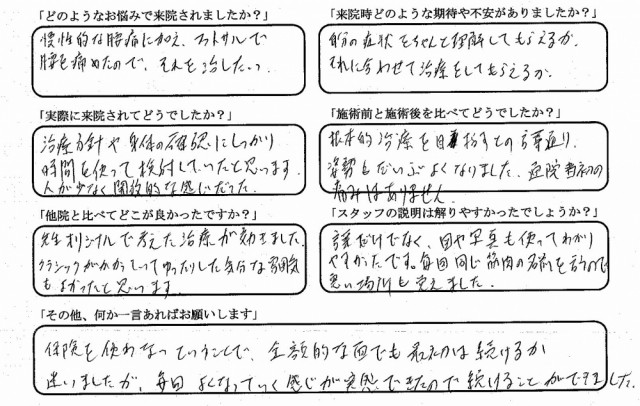 「どのようなお悩みで来院されましたか？」
慢性的な腰痛に加え、フットサルで
腰を痛めたので、それを治したい。
「来院時どのような期待や不安がありましたか？」
自分の症状をちゃんと理解してもらえるか。
それに合わせて治療をしてもらえるか。
「実際に来院されてどうでしたか？」
治療方針や身体の確認にしっかり
時間を使って検討していたと思います。
人が少なく開放的な感じだった。
「施術前と施術後を比べてどうでしたか？」
根本的治療を目指すとの言葉通り、
姿勢もだいぶよくなりました。通院当初の
痛みはありません。
「他院と比べてどこが良かったですか？」
先生オリジナルで考えた治療が効きました。
クラシックがかかっていてゆったりした気分な雰囲気
もよかったと思います。
「スタッフの説明は解りやすかったでしょうか？」
言葉だけでなく、図や写真も使ってわかり
やすかったです。毎回同じ筋肉の名前を言うので
悪い場所も覚えました。
「その他、何か一言あればお願いします」
保険を使わないということで、金額的な面でも最初は続けるか
迷いましたが、毎回よくなっていく感じが実感できたので続けることができました。